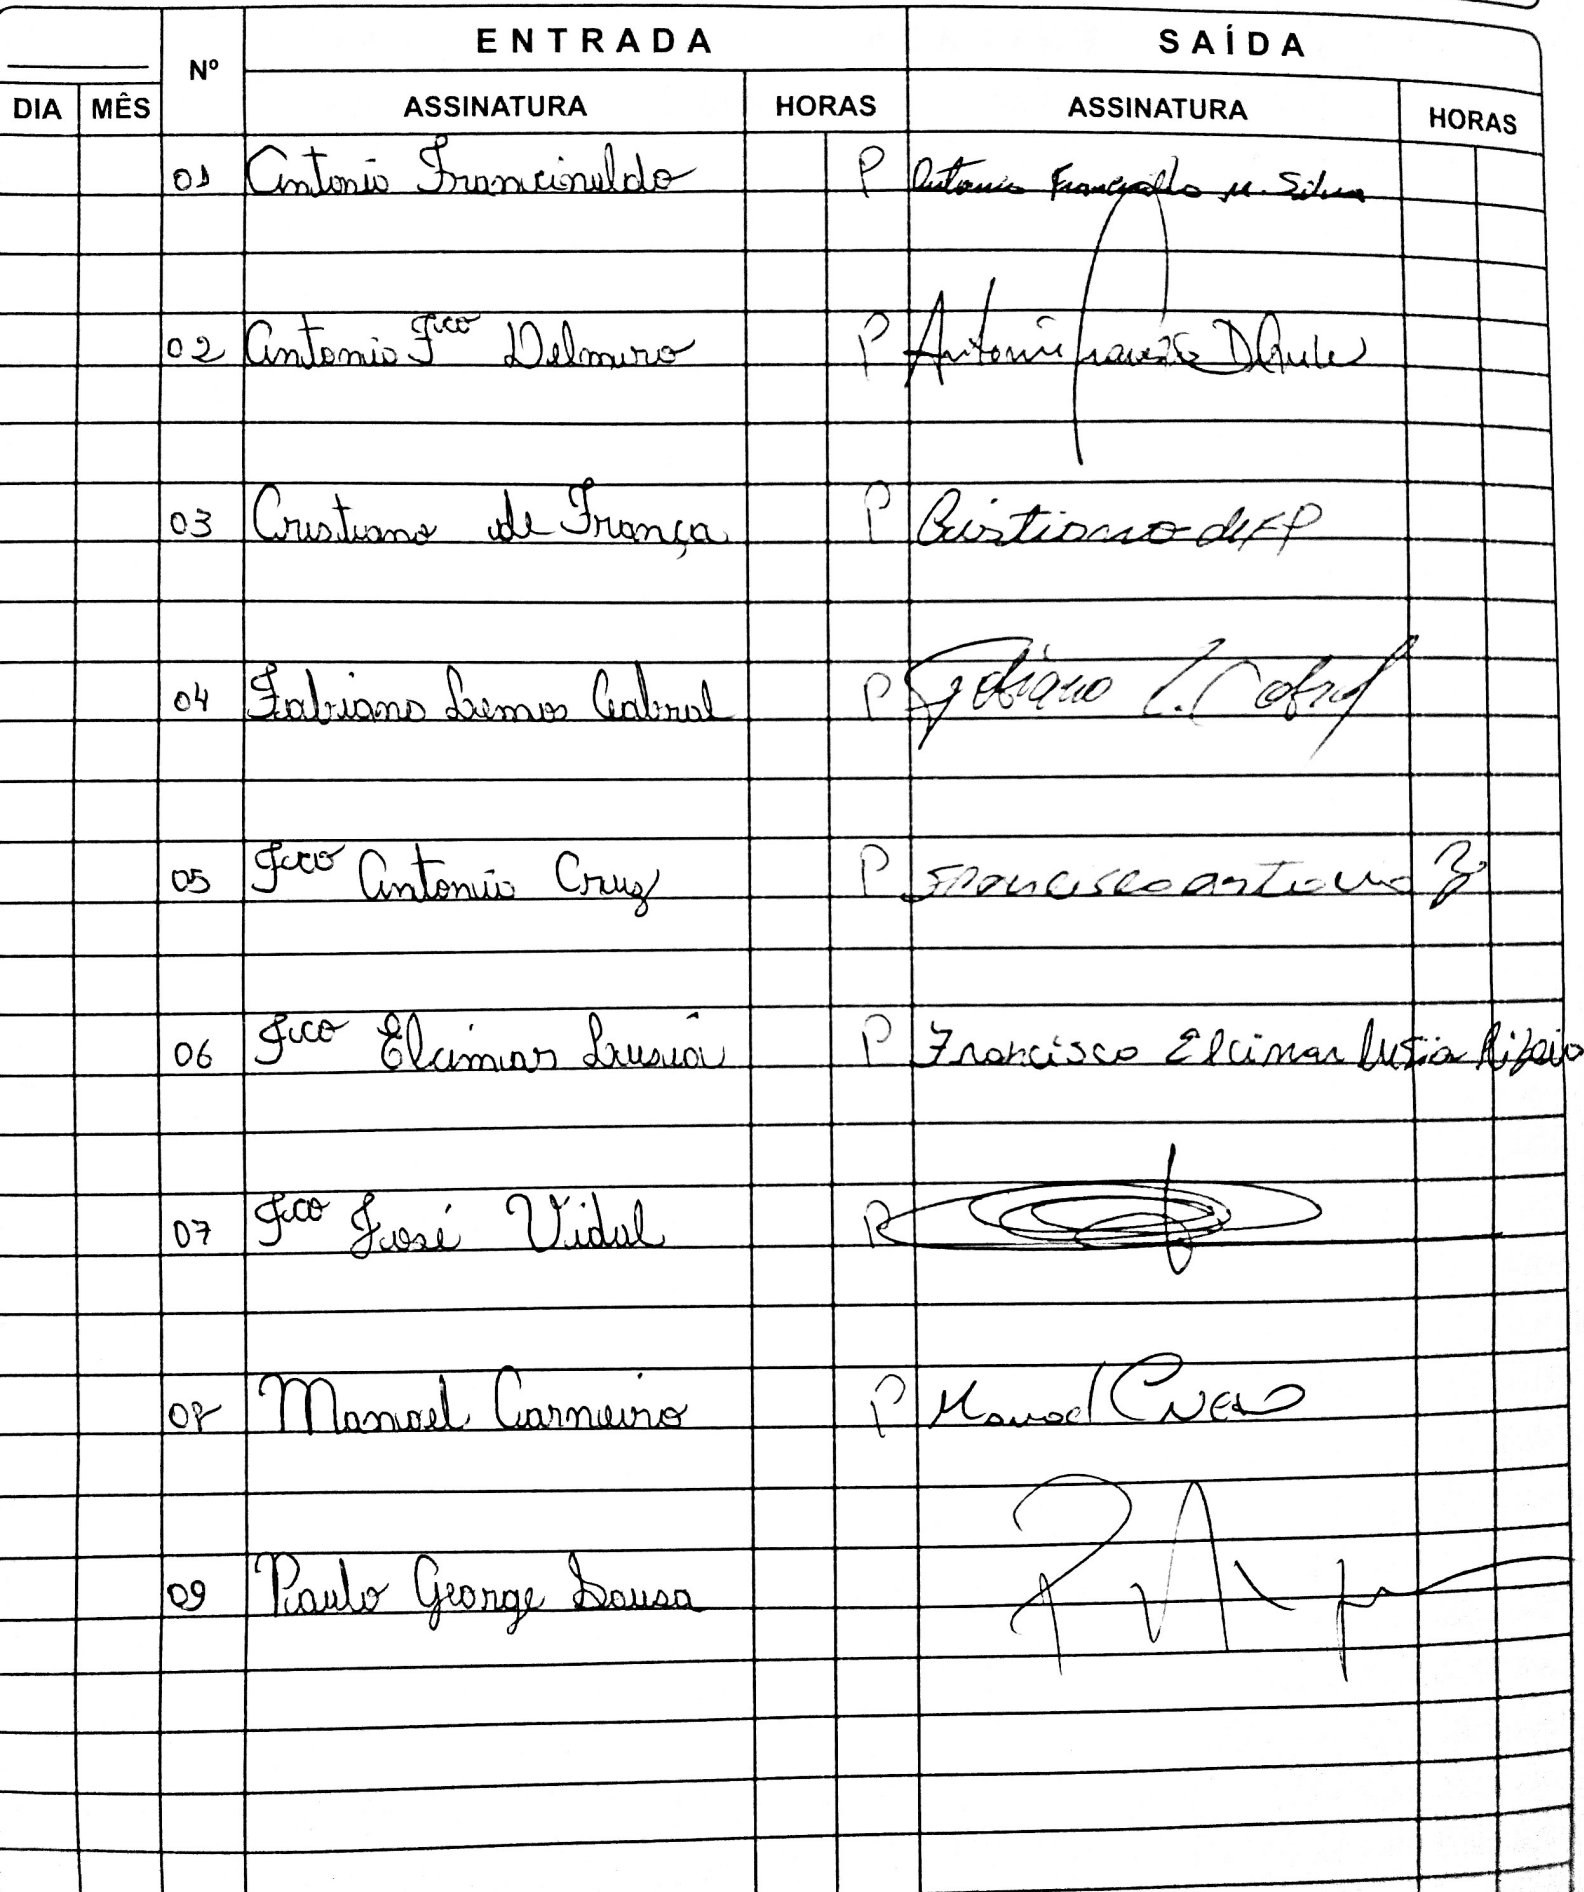 ENTRADA SAÍDA
Nº
DIA MÊS ASSINATURA HORAS ASSINATURA HORAS
01 Antonio Francinaldo P Antonio Francinaldo M. Silva
02 Antonio Fco Delmiro P Antonio
03 Cristiano de França P Cristiano de F P
04 Fabiano Lemos Cabral P Fabiano L. Cabral
05 Fco Antonio Cruz P Francisco Antonio
06 Fco Elcimar Lusia P Francisco Elcimar Lusia Ribeiro
07 Fco José Vidal P
08 Manoel Carneiro P Manoel
09 Paulo George Sousa